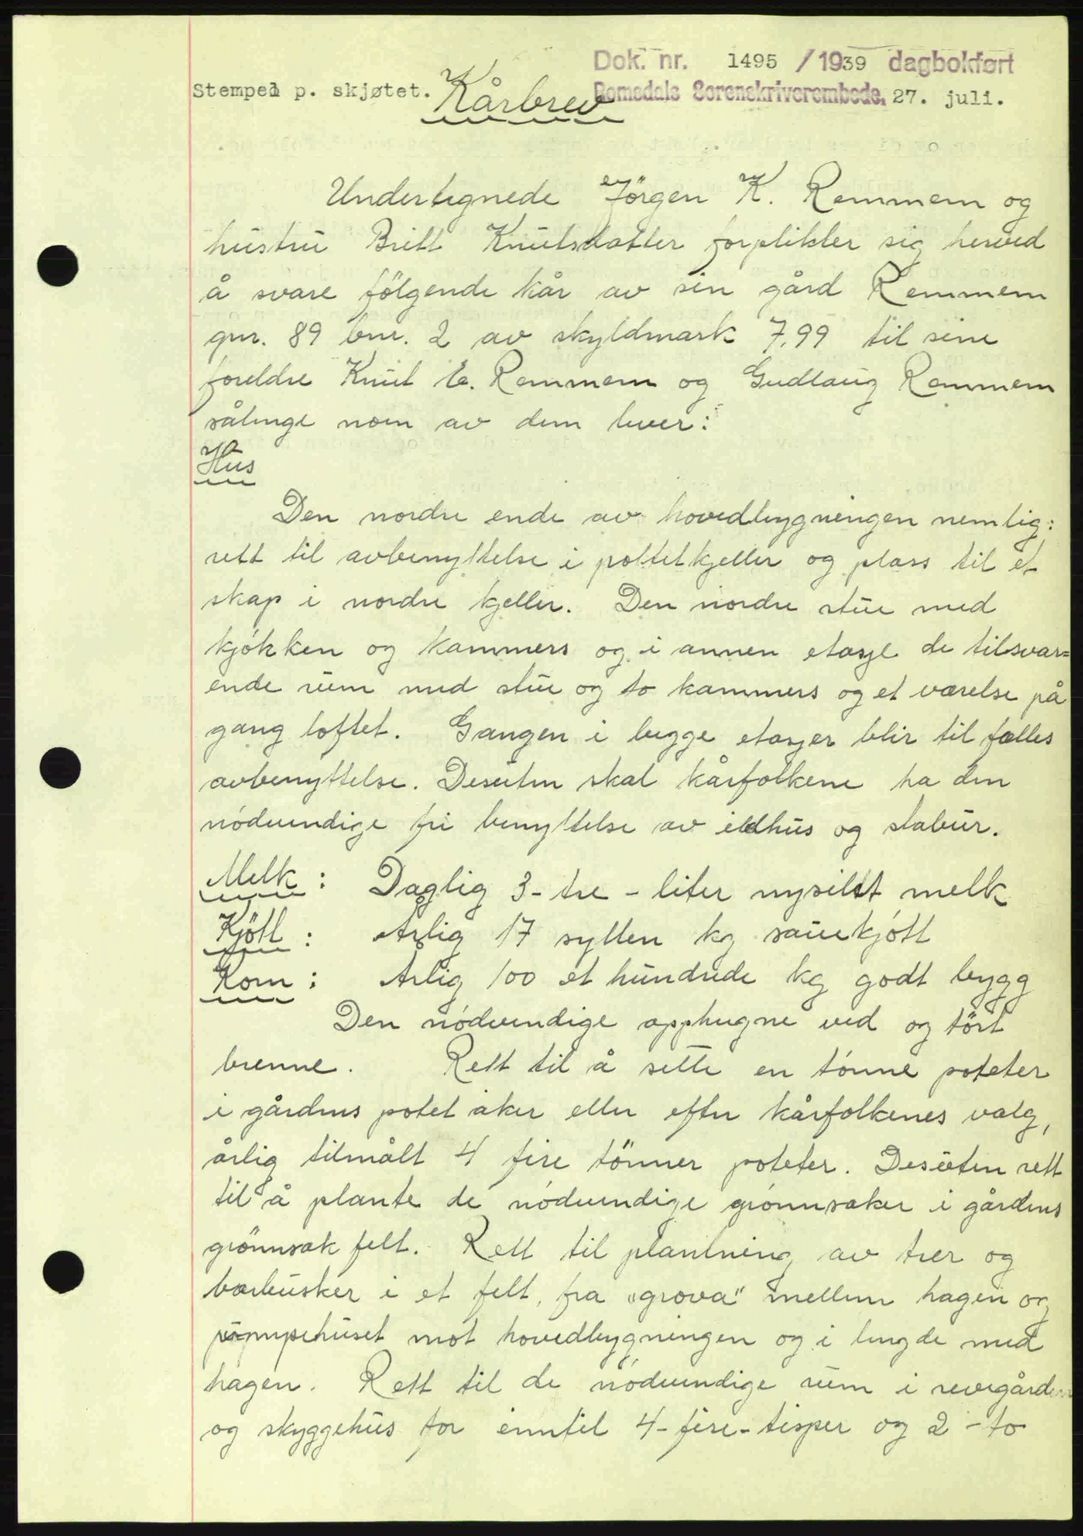 Dok. nr. 1495 / 1939 dagbokført
Stempel p. skjøtet. Kårbrev Romsdals Sorenskriverembede, 27. juli.
Undertegnede Jörgen K. Remmem og
hustru Brit Knutsdatter forplikter sig herved
å svare følgende kår av sin gård Remmem
gnr. 89 bnr. 2 av skyldmark 7,99 til sine
foreldre Knut E. Remmem og Gudlaug Remmem
sålenge noen av dem lever:
Hus
Den nordre ende av hovedbygningen nemlig:
rett til avbenyttelse i potetkjeller og plass til et
skap i nordre kjeller. Den nordre stue med
kjökken og kammers og i annen etasje de tilsvar=
ende rum med stue og to kammers og et værelse på
gang loftet. Gangen i begge etasjer blir til fælles
avbenyttelse. Desuten skal kårfolkene ha den
nödvendige fri benyttelse av ildhus og stabur.
Melk: Daglig 3- tre - liter nysilt melk
Kjött: Årlig 17 sytten kg sauekjött
Korn: Årlig 100 et hundrede kg godt bygg
Den nödvendige opphugne ved og tört
brenne. Rett til å sette en tönne poteter
i gårdens potet åker eller efter kårfolkenes valg,
årlig tilmålt 4 fire tönner poteter. Desuten rett
til å plante de nödvendige grönnsaker i gårdens
grönnsak felt. Rett til plantning av trær og
bærbusker i et felt, fra „grova" mellem hagen og
pumpehuset mot hovedbygningen og i lengde med
hagen. Rett til de nödvendige rum i revegården
og skyggehus for inntil 4- fire - tisper og 2 - to